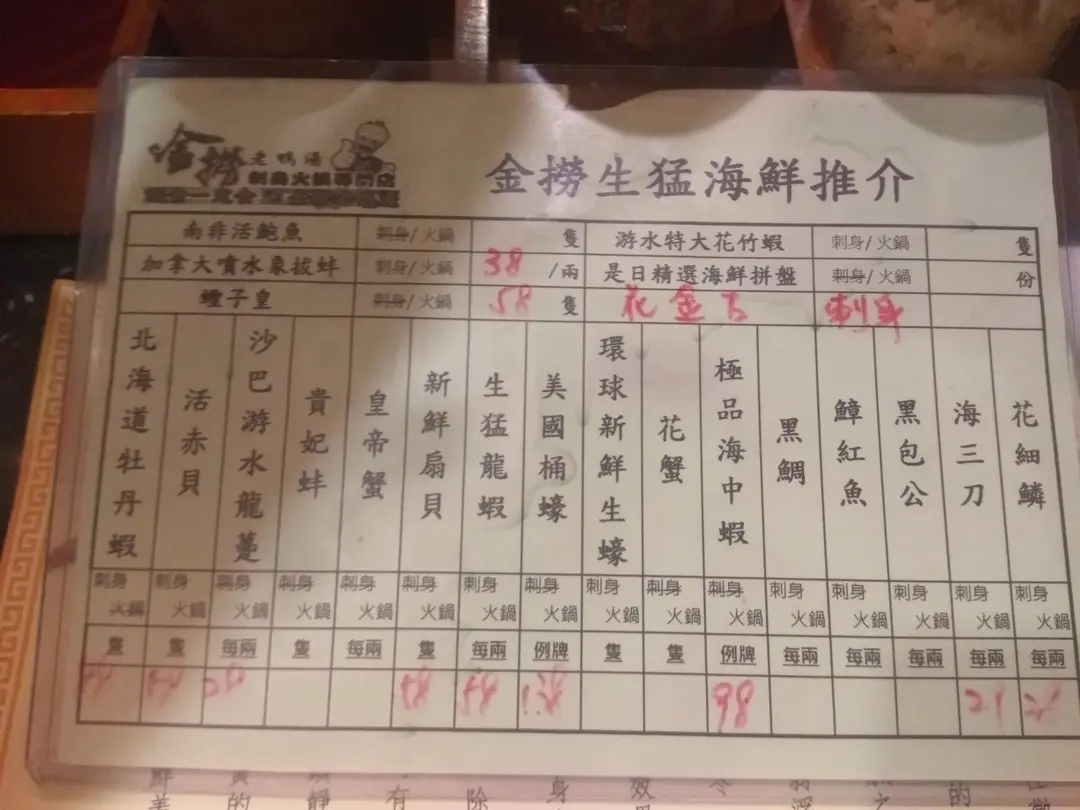 金撈
老鴨湯
刺身火鍋專門店
金撈生猛海鮮推介
南非活鮑魚 刺身/火鍋 隻 游水特大花竹蝦 刺身/火鍋 隻
加拿大噴水象拔蚌 刺身/火鍋 38 /兩 是日精選海鮮拼盤 刺身/火鍋 份
蟶子皇 刺身/火鍋 58 隻 刺身
北海道牡丹蝦
活赤貝
沙巴游水龍躉
貴妃蚌
皇帝蟹
新鮮扇貝
生猛龍蝦
美國桶蠔
環球新鮮生蠔
花蟹
極品海中蝦
黑鯛
鱆紅魚
黑包公
海三刀
花細鱗
刺身 刺身 刺身 刺身 刺身 刺身 刺身 刺身 刺身 刺身 刺身 刺身 刺身 刺身 刺身 刺身
火鍋 火鍋 火鍋 火鍋 火鍋 火鍋 火鍋 火鍋 火鍋 火鍋 火鍋 火鍋 火鍋 火鍋 火鍋 火鍋
隻 隻 每兩 隻 每兩 隻 每兩 例牌 隻 隻 例牌 每兩 每兩 每兩 每兩 每兩
98